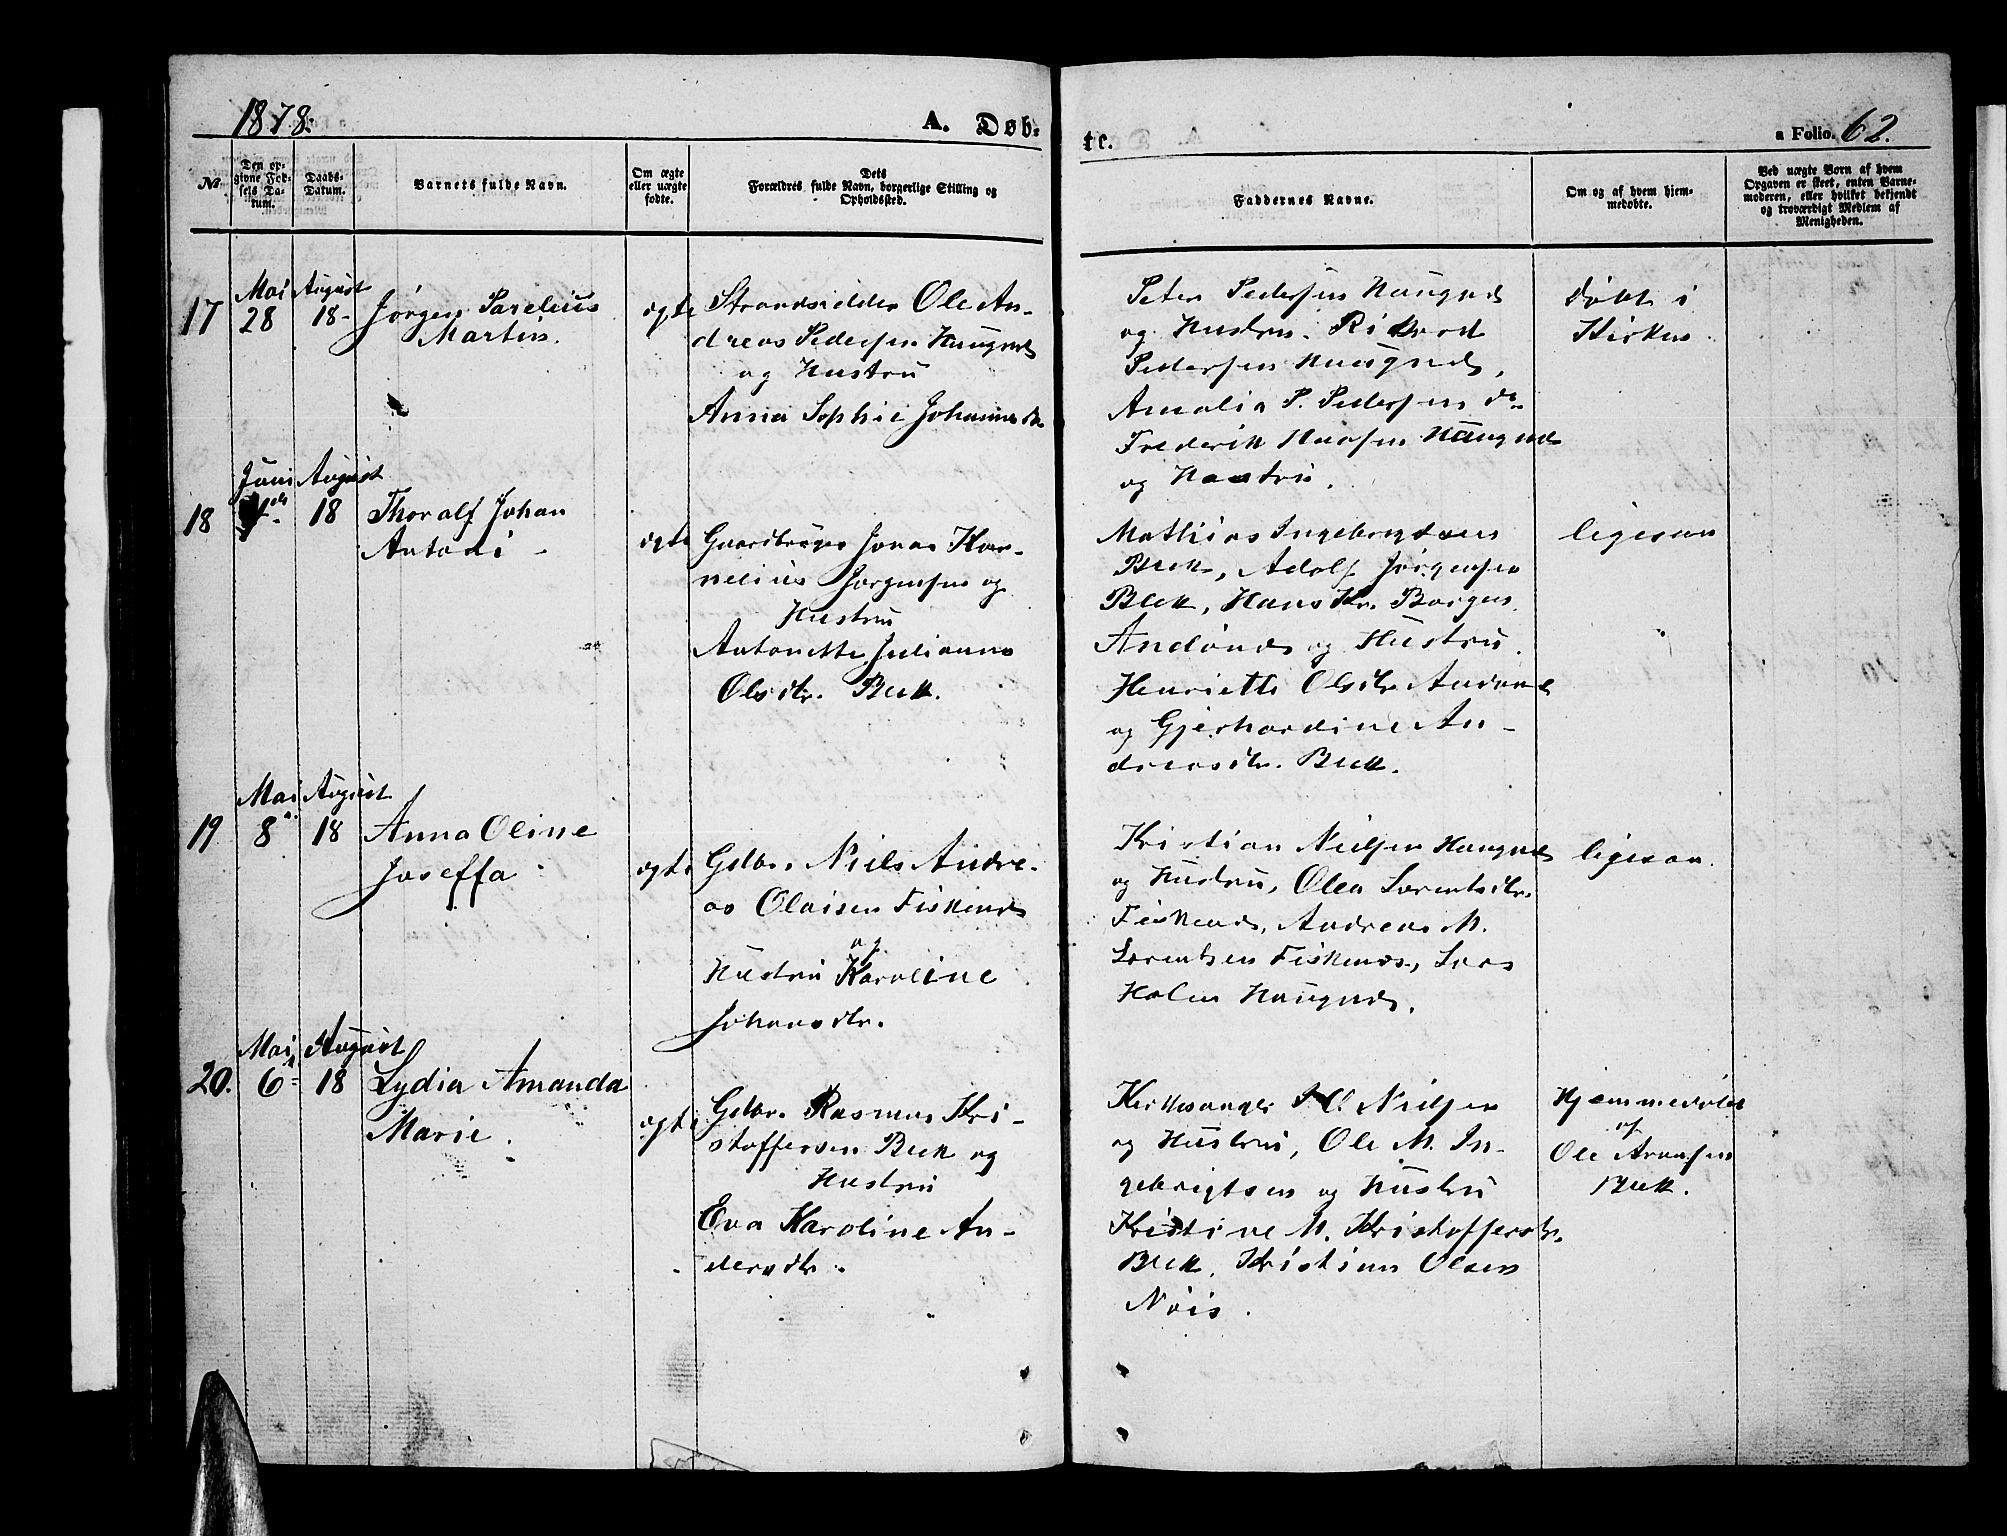 1878.
A. Døb-
te.
a Folio. 62.
No
Den op-
givne Fød-
sels Da-
tum.
Daabs-
Datum.
Barnets fulde Navn.
Om ægte
eller uægte
fødte.
Dets
Forældres fulde Navn, borgerlige Stilling og
Opholdssted.
Faddernes Navne.
Om og af hvem hjem-
medøbte.
Ved uægte Børn af hvem
Opgaven er skeet, enten Barne-
moderen, eller hvilket bekjendt
og troværdigt Medlem af
Menigheden.
17
Mai
28
August
18-
Jørgen Parelius
Martin.
ægte
Strandsidder Ole An-
dreas Pedersen Haugnes
og Hustru
Anna Sophie Johannesdr
Peter Pedersen Haugnes
og Hustru. Rikard
Pedersen Haugnes,
Amalia P. Pedersen do
Frederik Hansen Haugnes
og Hustru.
døbt i
Kirken.
18
Juni
4de
August
18
Thoralf Johan
Antoni
ægte
Gaardbruger Jonas Kor-
nelius Jørgensen og
Hustru
Antonette Julianna
Olsdtr. Bek.
Mathias Ingebrigtsen
Bek, Adolf Jørgensen
Bek, Hans Kr. Borgen
Andønes og Hustru.
Henriette Olsdtr Andønes
og Gjerhardine An-
dreasdtr. Bek.
ligesaa
19
Mai
8
August
18
Anna Oline
Joseffa
ægte
Gdbr. Niels Andre-
as Olaisen Fiskenes
og
Hustru Karoline
Johansdtr.
Kristian Nielsen Haugnes
og Hustru, Olea Lorentsdtr.
Fiskenes, Andreas M.
Lorentsen Fiskenes, Lars
Holm Haugnes.
ligesaa.
20.
Mai
6
August
18
Lydia Amanda
Marie.
ægte
Gdbr. Rasmus Kri-
stoffersen Bek og
Hustru
Eva Karoline An-
dersdtr.
Kirkesanger Nielsen
og Hustru, Ole M. In-
gebrigtsen og Hustru
Kristine M. Kristoffersdtr.
Bek, Kristian Olsen
Nøis.
Hjemmedøbt
af
Ole Aronsen
Bek.